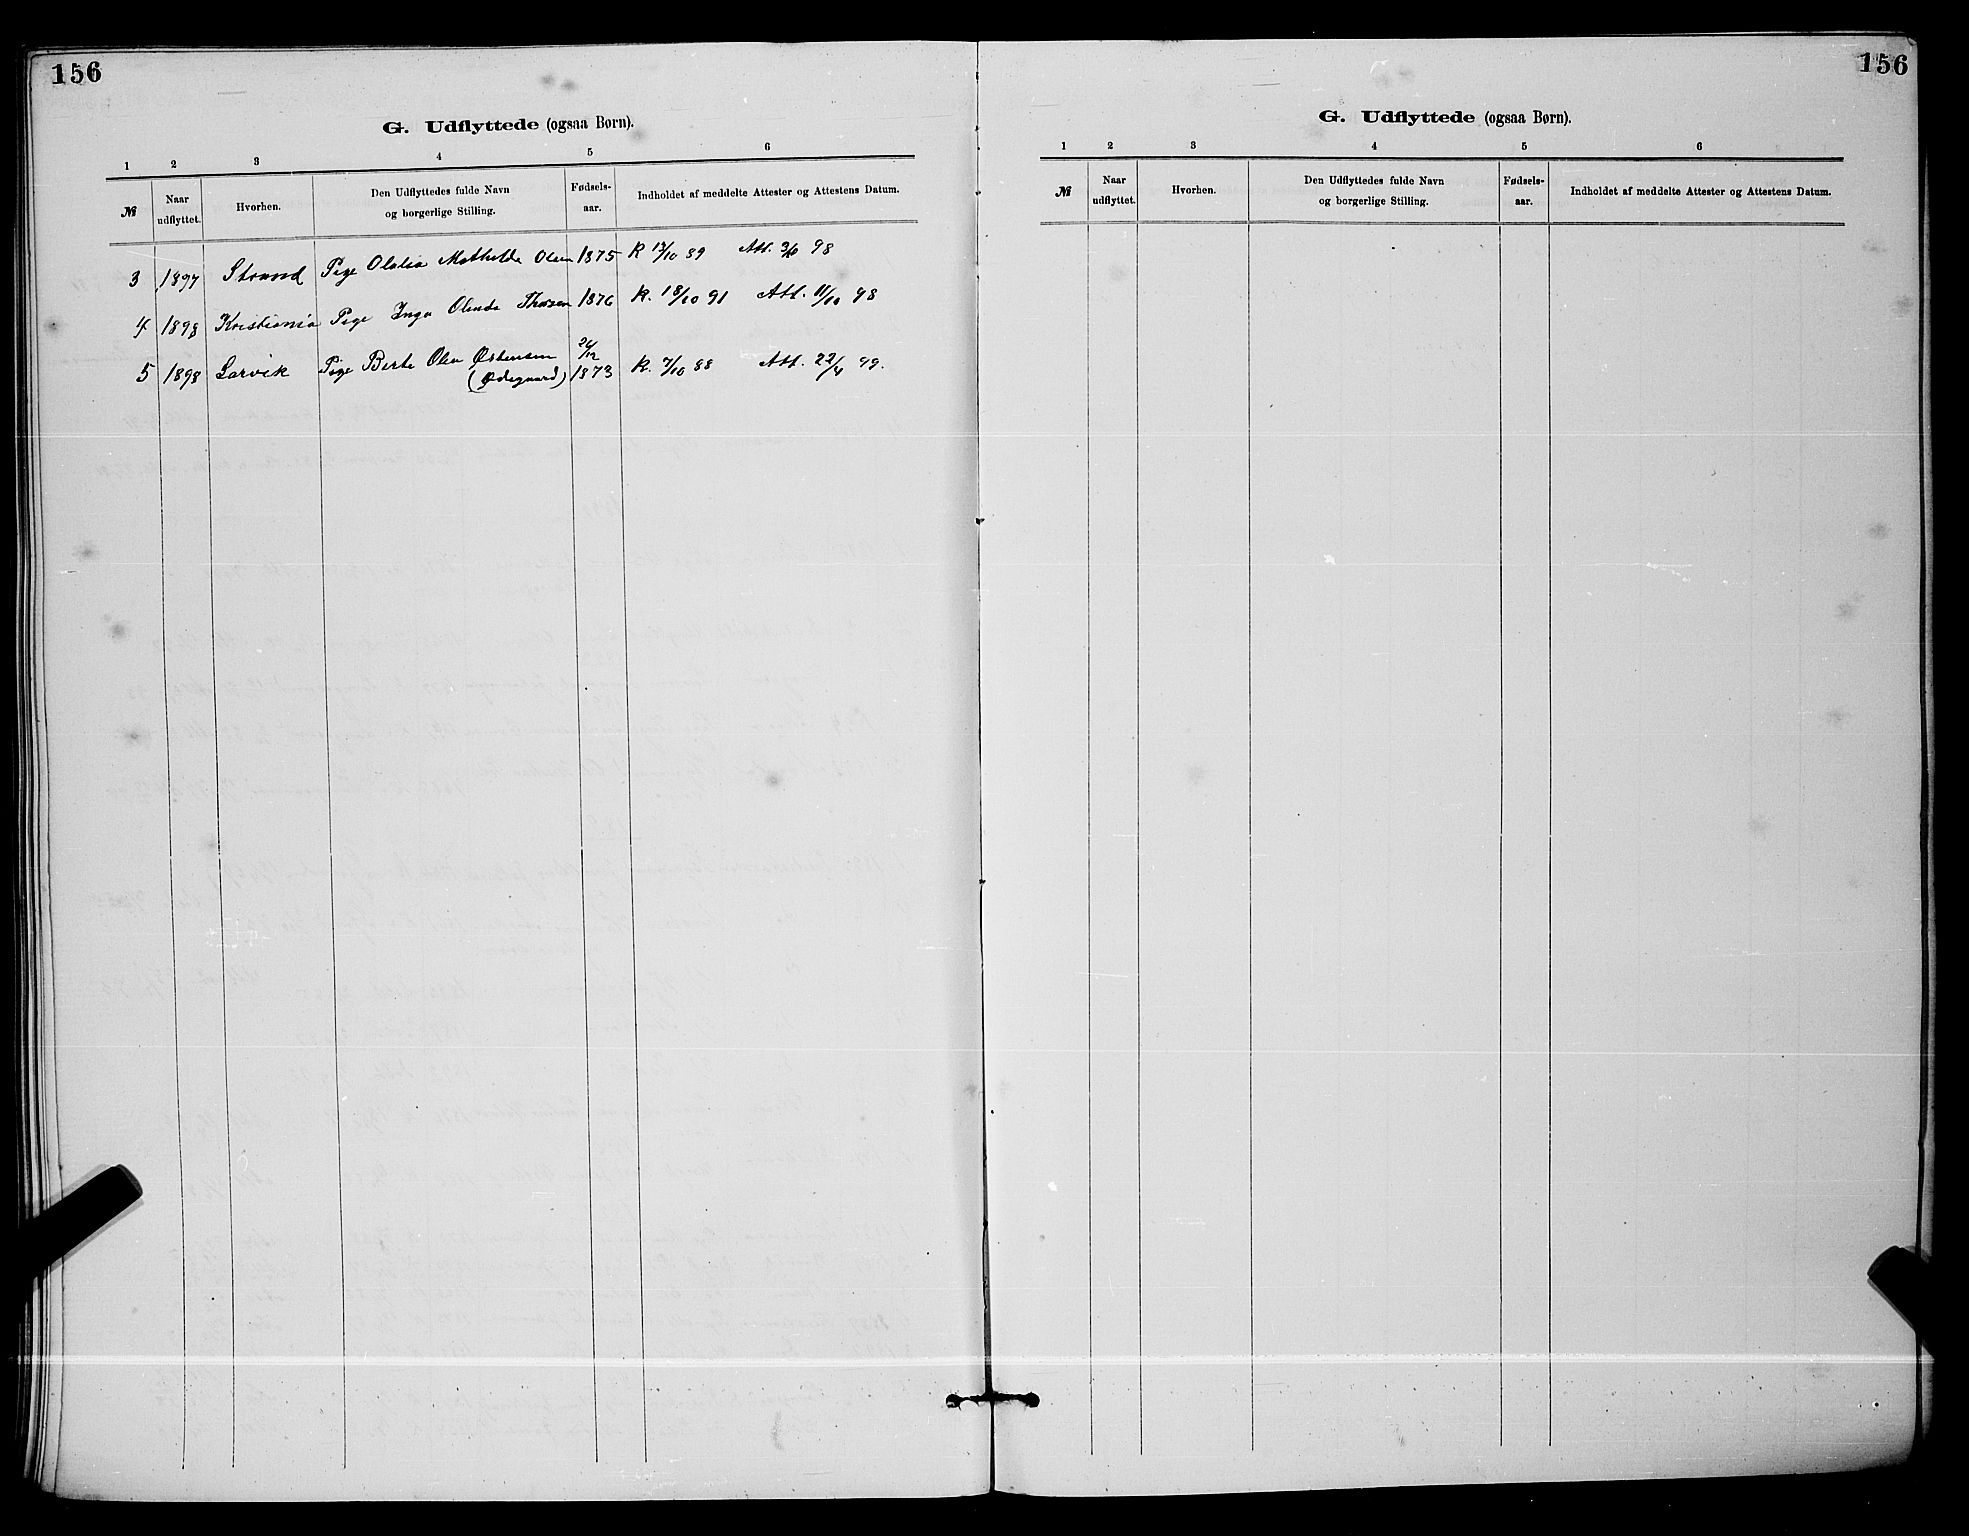 156
G. Udflyttede (ogsaa Børn).
1 2 3 4 5 6
№ Naar udflyttet. Hvorhen. Den Udflyttedes fulde Navn og borgerlige Stilling. Fødsels-aar. Indholdet af meddelte Attester og Attestens Datum.
3 1897 Strand Pige Olalia Mathilde Olsen 1875 K 13/10 89 Att. 98
4 1898 Kristiania Pige Inga Olende Thorsen 1876 K. 18/10 91 Att. 11/10 98
5 1898 Larvik Pige Berte Olea Østensen 24/12
(Ødegaard) 1873 K. 7/10 88 Att. 22/4 99.
156
G. Udflyttede (ogsaa Børn).
1 2 3 4 5 6
№ Naar udflyttet. Hvorhen. Den Udflyttedes fulde Navn og borgerlige Stilling. Fødsels-aar. Indholdet af meddelte Attester og Attestens Datum.